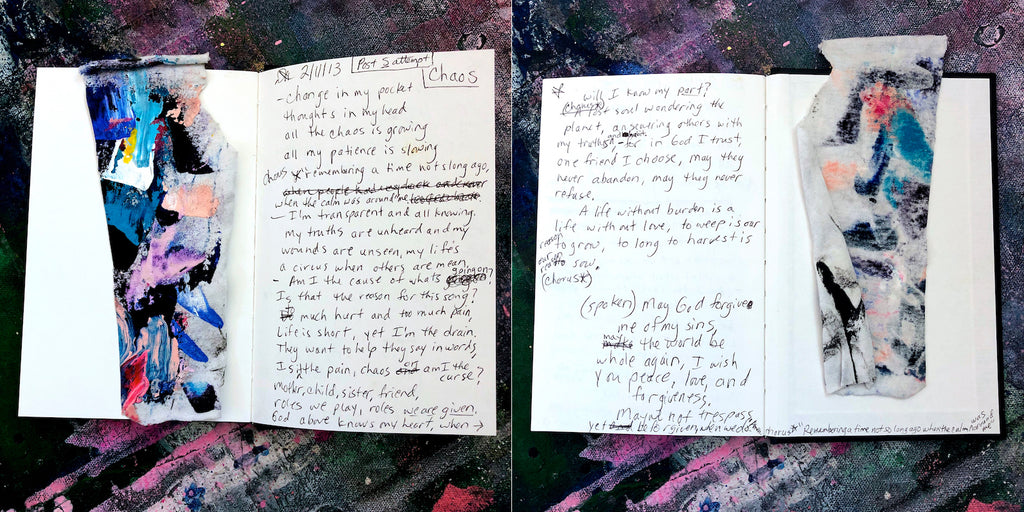 2/11/13 Post S attempt
Chaos
- change in my pocket
thoughts in my head
all the chaos is growing
all my patience is slowing
chaos * remembering a time not so long ago,
when the calm was around me
- I'm transparent and all knowing.
my truths are unheard and my
wounds are unseen, my life's
a circus when others are mean,
- Am I the cause of what's going on?
Is that the reason for this song?
much hurt and too much pain,
Life is short, yet I'm the drain.
They want to help they say in words,
Is it the pain, chaos or am I the
curse?
mother, child, sister, friend,
roles we play, roles we are given.
God above knows my heart, when →
* will I know my part?
(chorus*)
A lost soul wondering the
planet, answering others with
my truths, and for in God I trust,
one friend I choose, may they
never abandon, may they never
refuse.
A life without burden is a
life without love, to weep is our
reason to grow, to long to harvest is
our
to sow.
(chorus*)
(spoken) May God forgive
me of my sins,
may the world be
whole again, I wish
you peace, love, and
forgiveness.
May we not trespass,
yet be forgiven when we do.
chorus * Remembering a time not so long ago when the calm was around me